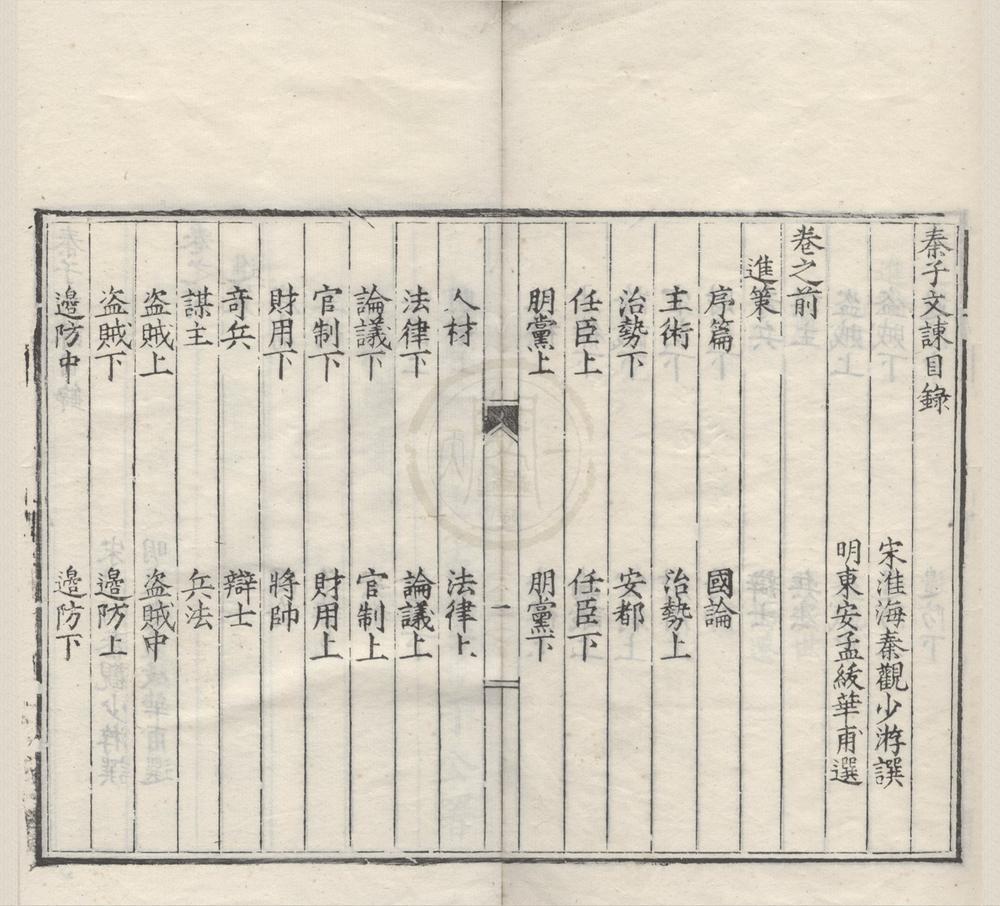 秦子文諫目錄
宋淮海秦觀少游譔
明東安孟綏華甫選
卷之前
進策
序篇 國論
主術 治勢上
治勢下 安都
任臣上 任臣下
朋黨上 朋黨下
一
人材 法律上
法律下 論議上
論議下 官制上
官制下 財用上
財用下 將帥
奇兵 辯士
謀主 兵法
盜賊上 盜賊中
盜賊下 邊防上
邊防中 邊防下